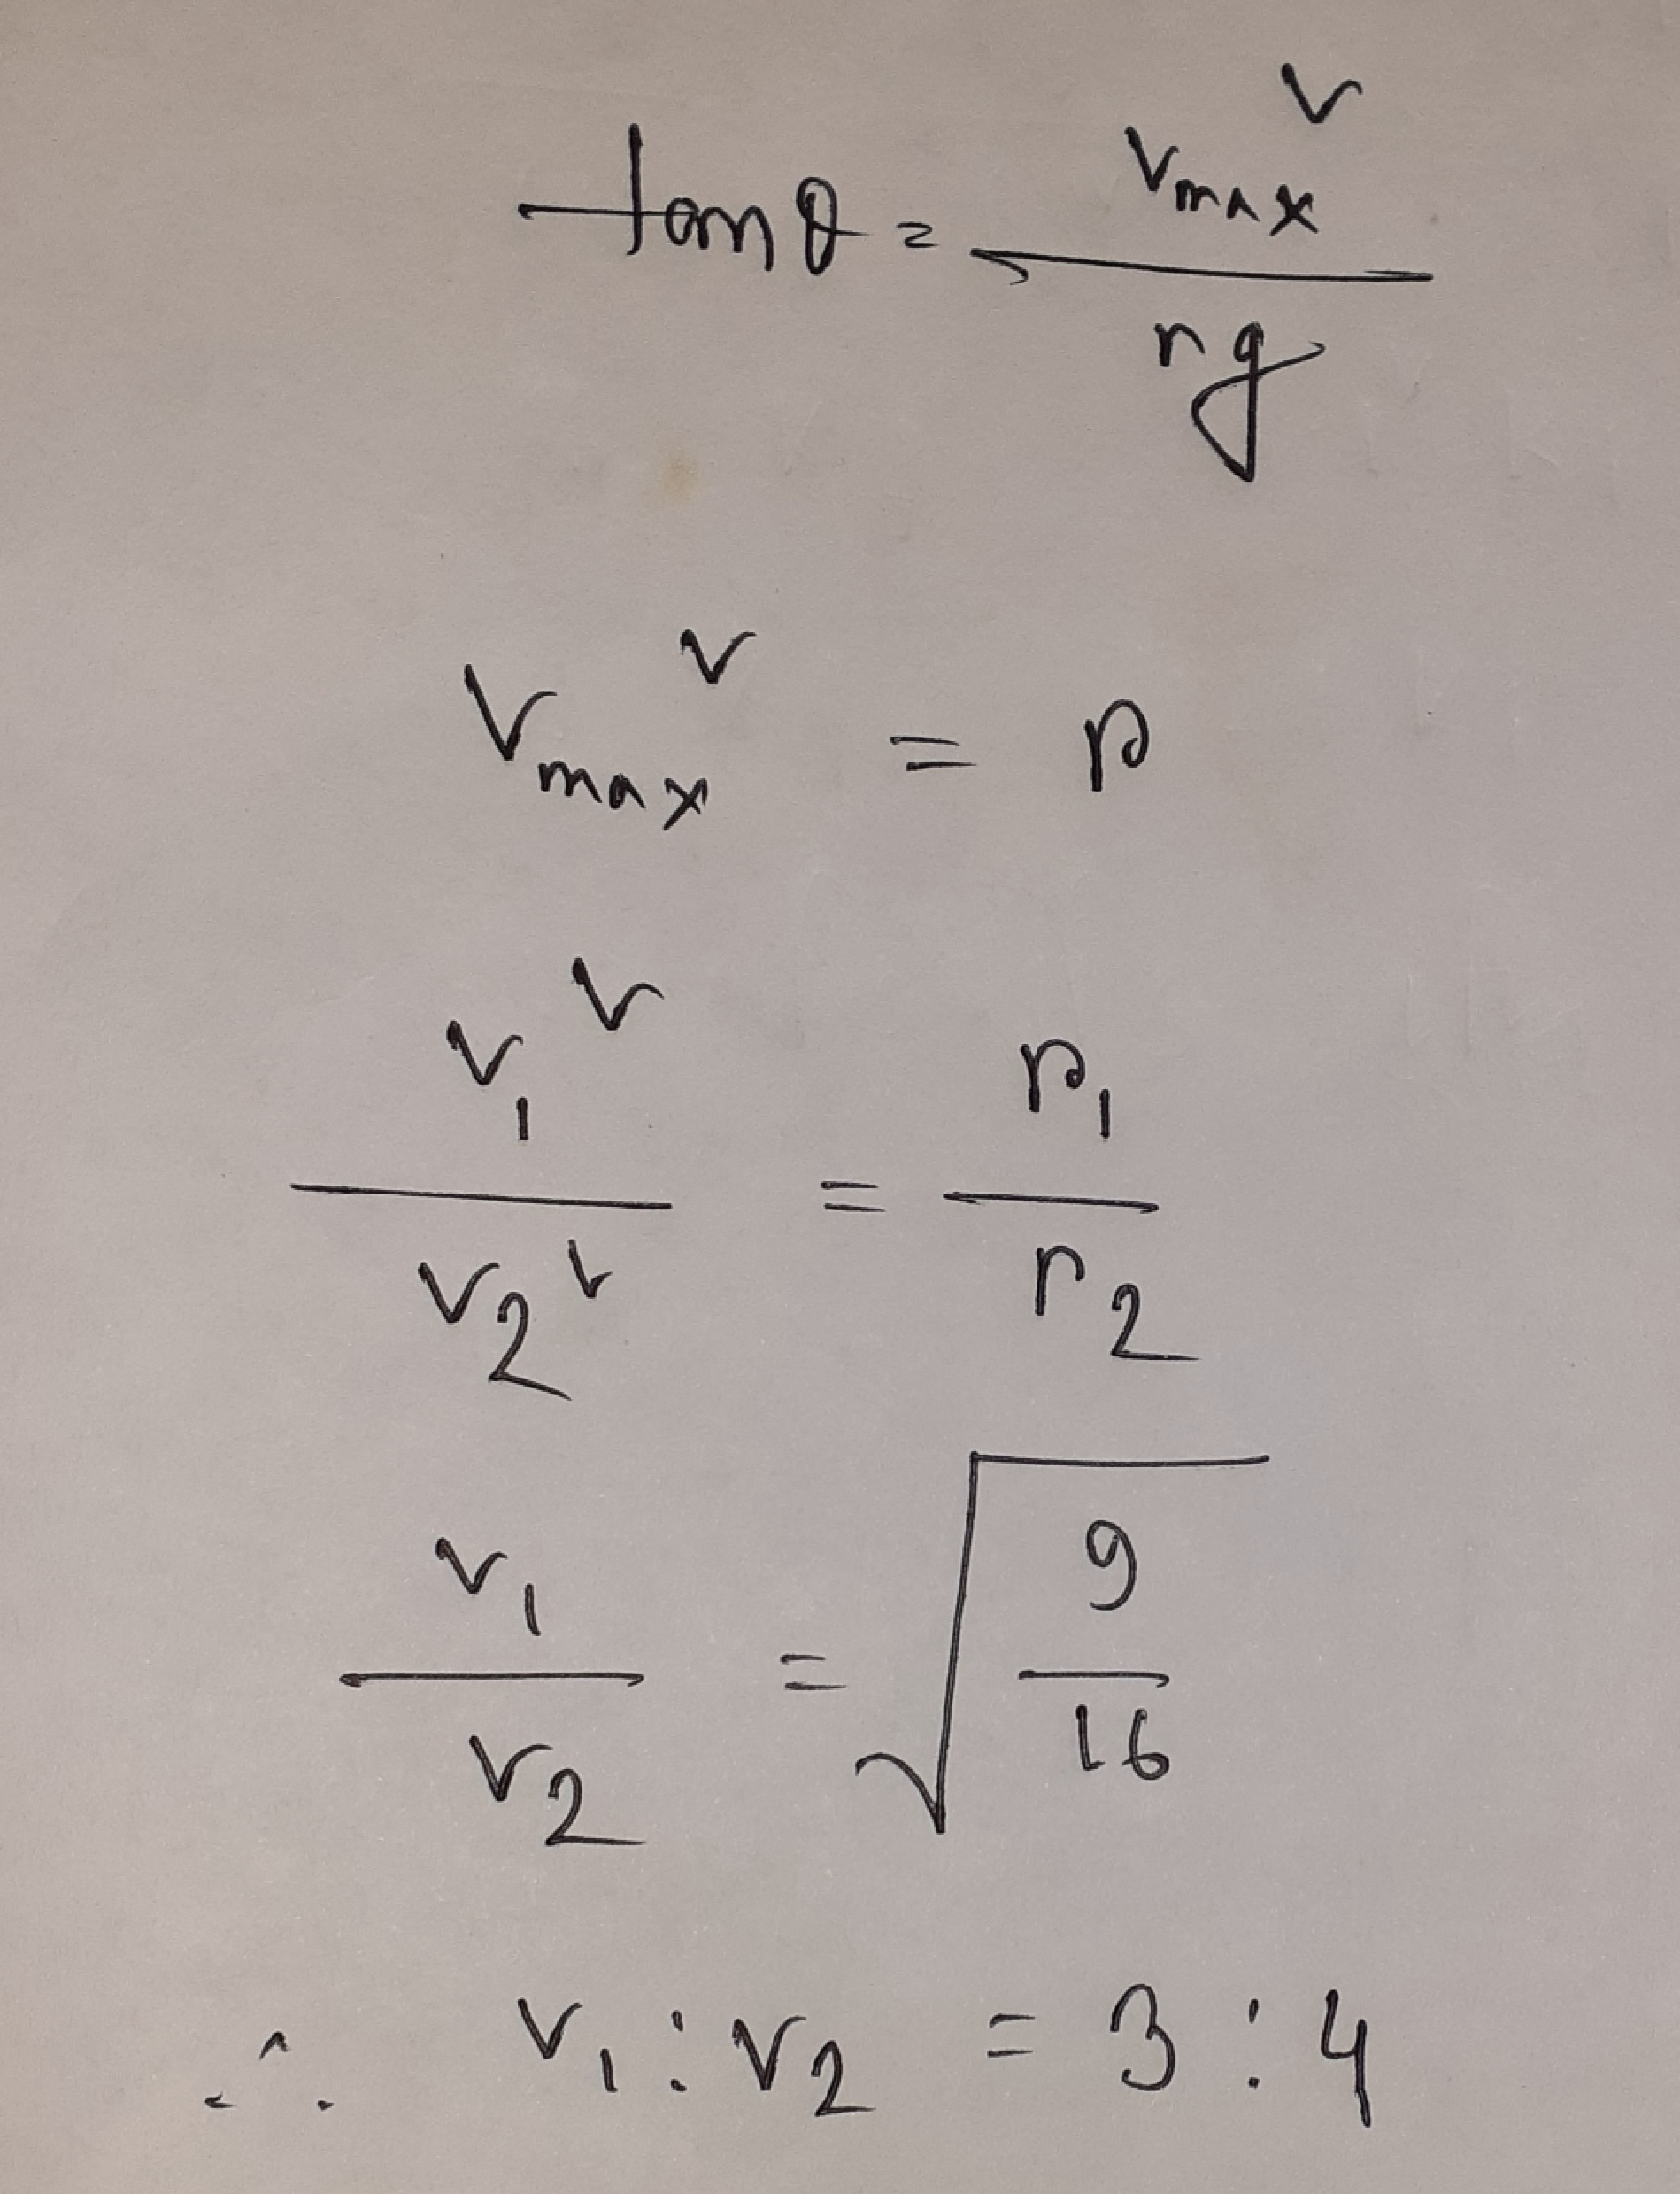 tanθ = v_max² / rg
v_max² = r
v₁² / v₂² = r₁ / r₂
v₁ / v₂ = √(9 / 16)
∴ v₁ : v₂ = 3 : 4